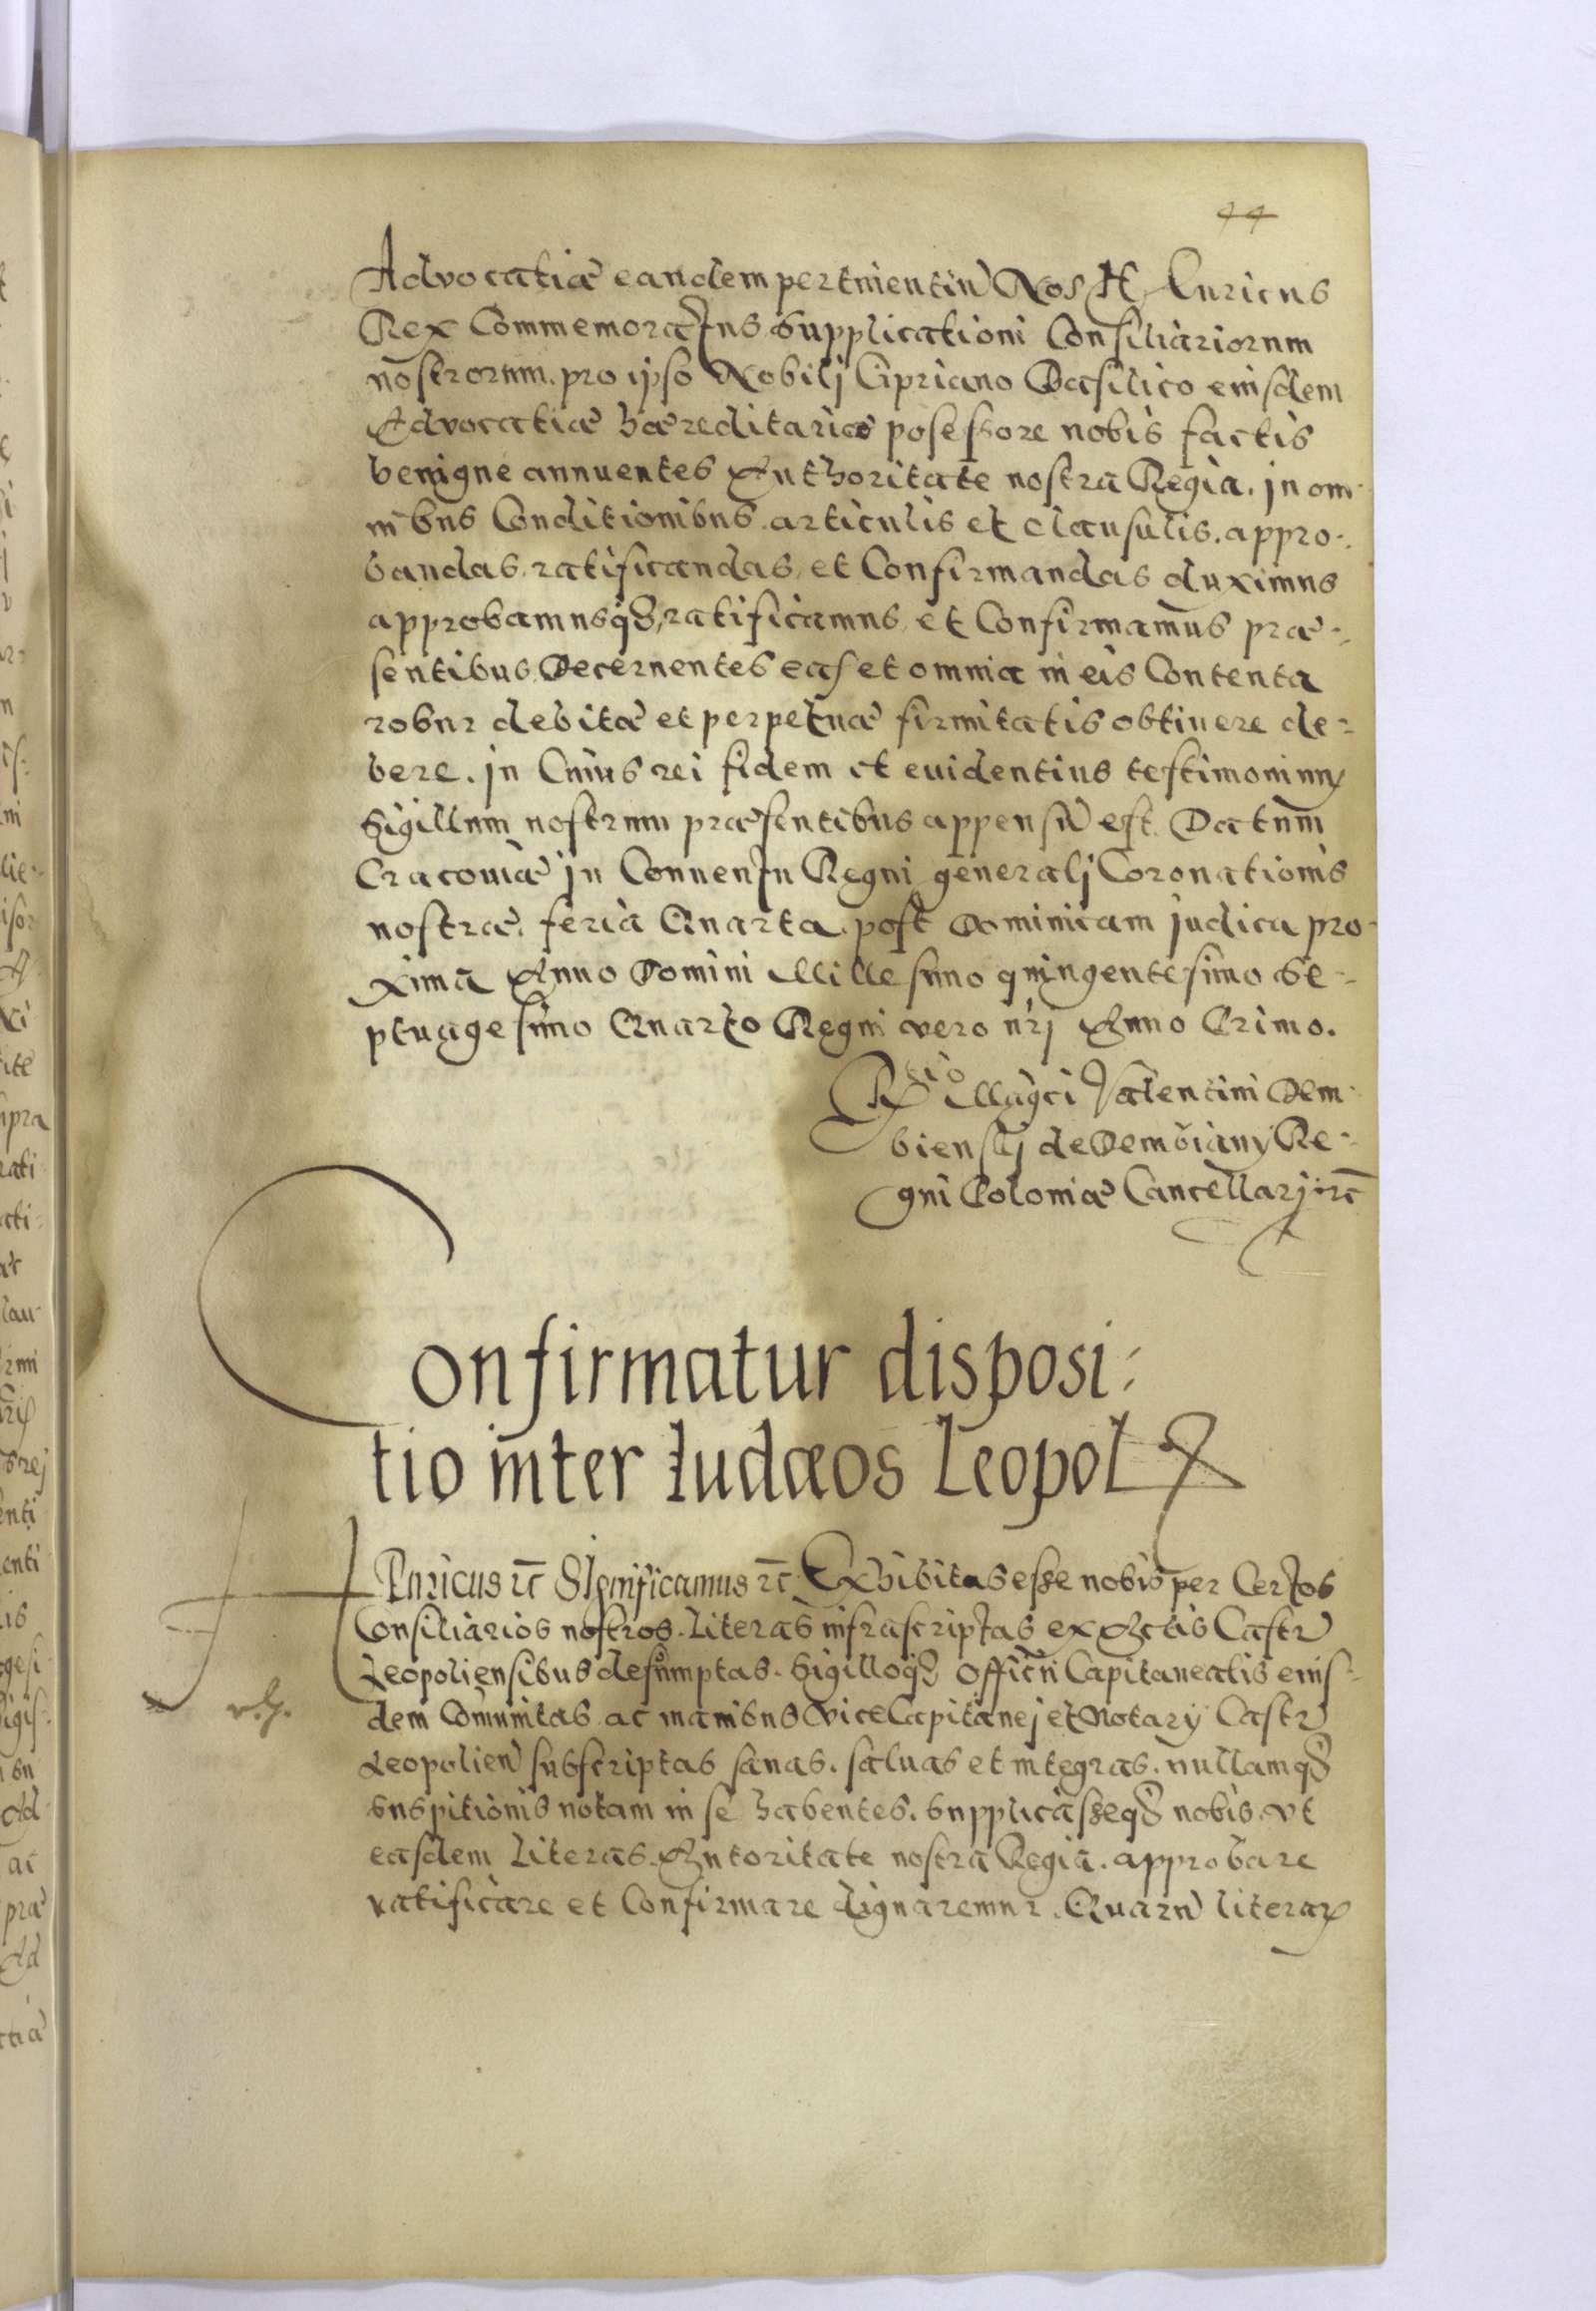 44
Advocatiæ eandem pertinentiũ Nos Henricus
Rex Commemoratus Supplicationi Consiliariorum
nostrorum. pro ipso Nobilj Cipriano Basilico eiusdem
Advocatiæ hæreditariæ posessore nobis factis
benigne annuentes Authoritate nostra Regia. in om-
nibus Conditionibus. articulis et clausulis. appro-
bandas, ratificandas, et Confirmandas duximus
approbamusqȝ, ratificamus, et Confirmamus præ-
sentibus. Decernentes eas et omnia in eis Contenta
robur debitæ et perpetuæ firmitatis obtinere de-
bere. in Cuius rei fidem et euidentius testimonium
Sigillum nostrum præsentibus appensũ est. Datum
Cracouiæ in Conuentu Regni generalj Coronationis
nostræ. feria Quarta. post Dominicam judica pro-
xima Anno Domini Millesimo quingentesimo Se-
ptuagesimo Quarto Regni vero nrj Anno Primo.
Rio Magci Valentini Dem-
biensky de Dembiany Re-
gni Poloniæ Cancellarj. ꝛc
Confirmatur disposi-
tio inter Iudæos Leopol
Henricus ꝛc Significamus ꝛc Exhibitas esse nobis per Certos
Consiliarios nostros. Literas infrascriptas ex Actis Castrẽ
Leopoliensibus desumptas. Sigilloqȝ Officii Capitanealis eius-
dem Comunitas ac manibus ViceCapitanej et Notary Castrẽ
Leopolieñ subscriptas sanas. saluas et integras. nullamqȝ
suspitionis notam in se habentes. Supplicasseqȝ nobis. vt
easdem Literas. Autoritate nostra Regia. approbare
ratificare et Confirmare dignaremur. Quarũ literarꝝ